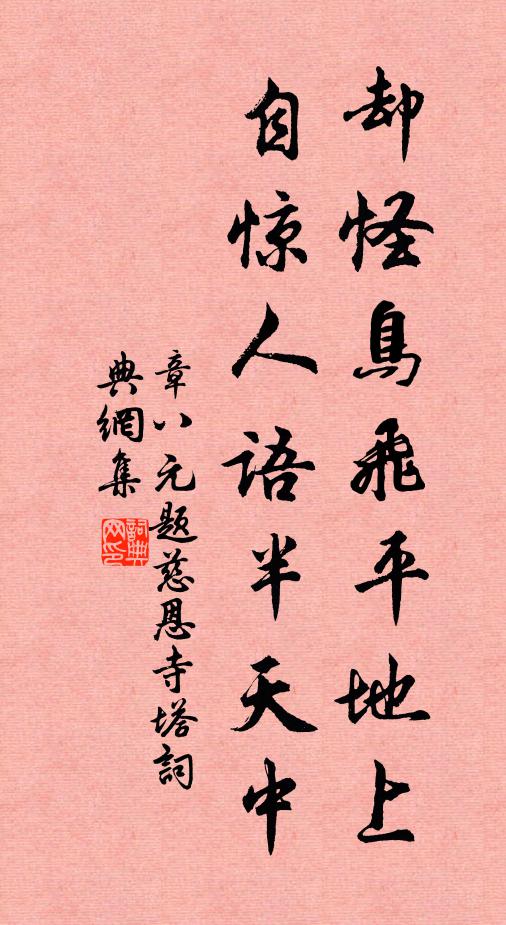 却怪鳥飛平地上
自惊人语半天中
章八元题慈恩寺塔詞
典網集
詞典網印